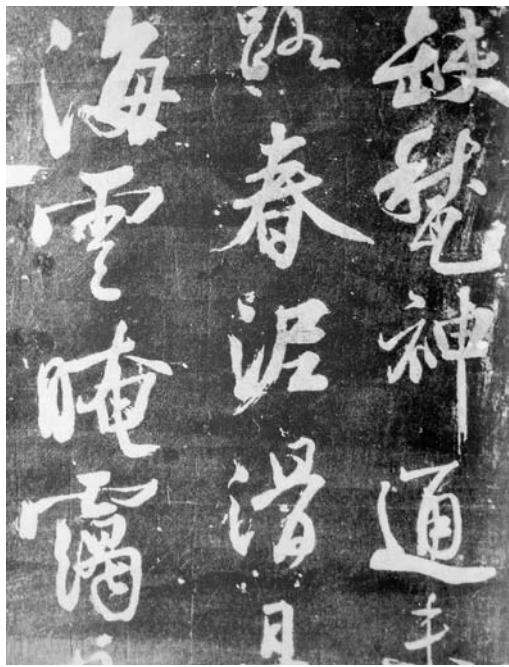 甃神通
路春泥滑
海雲晻靄